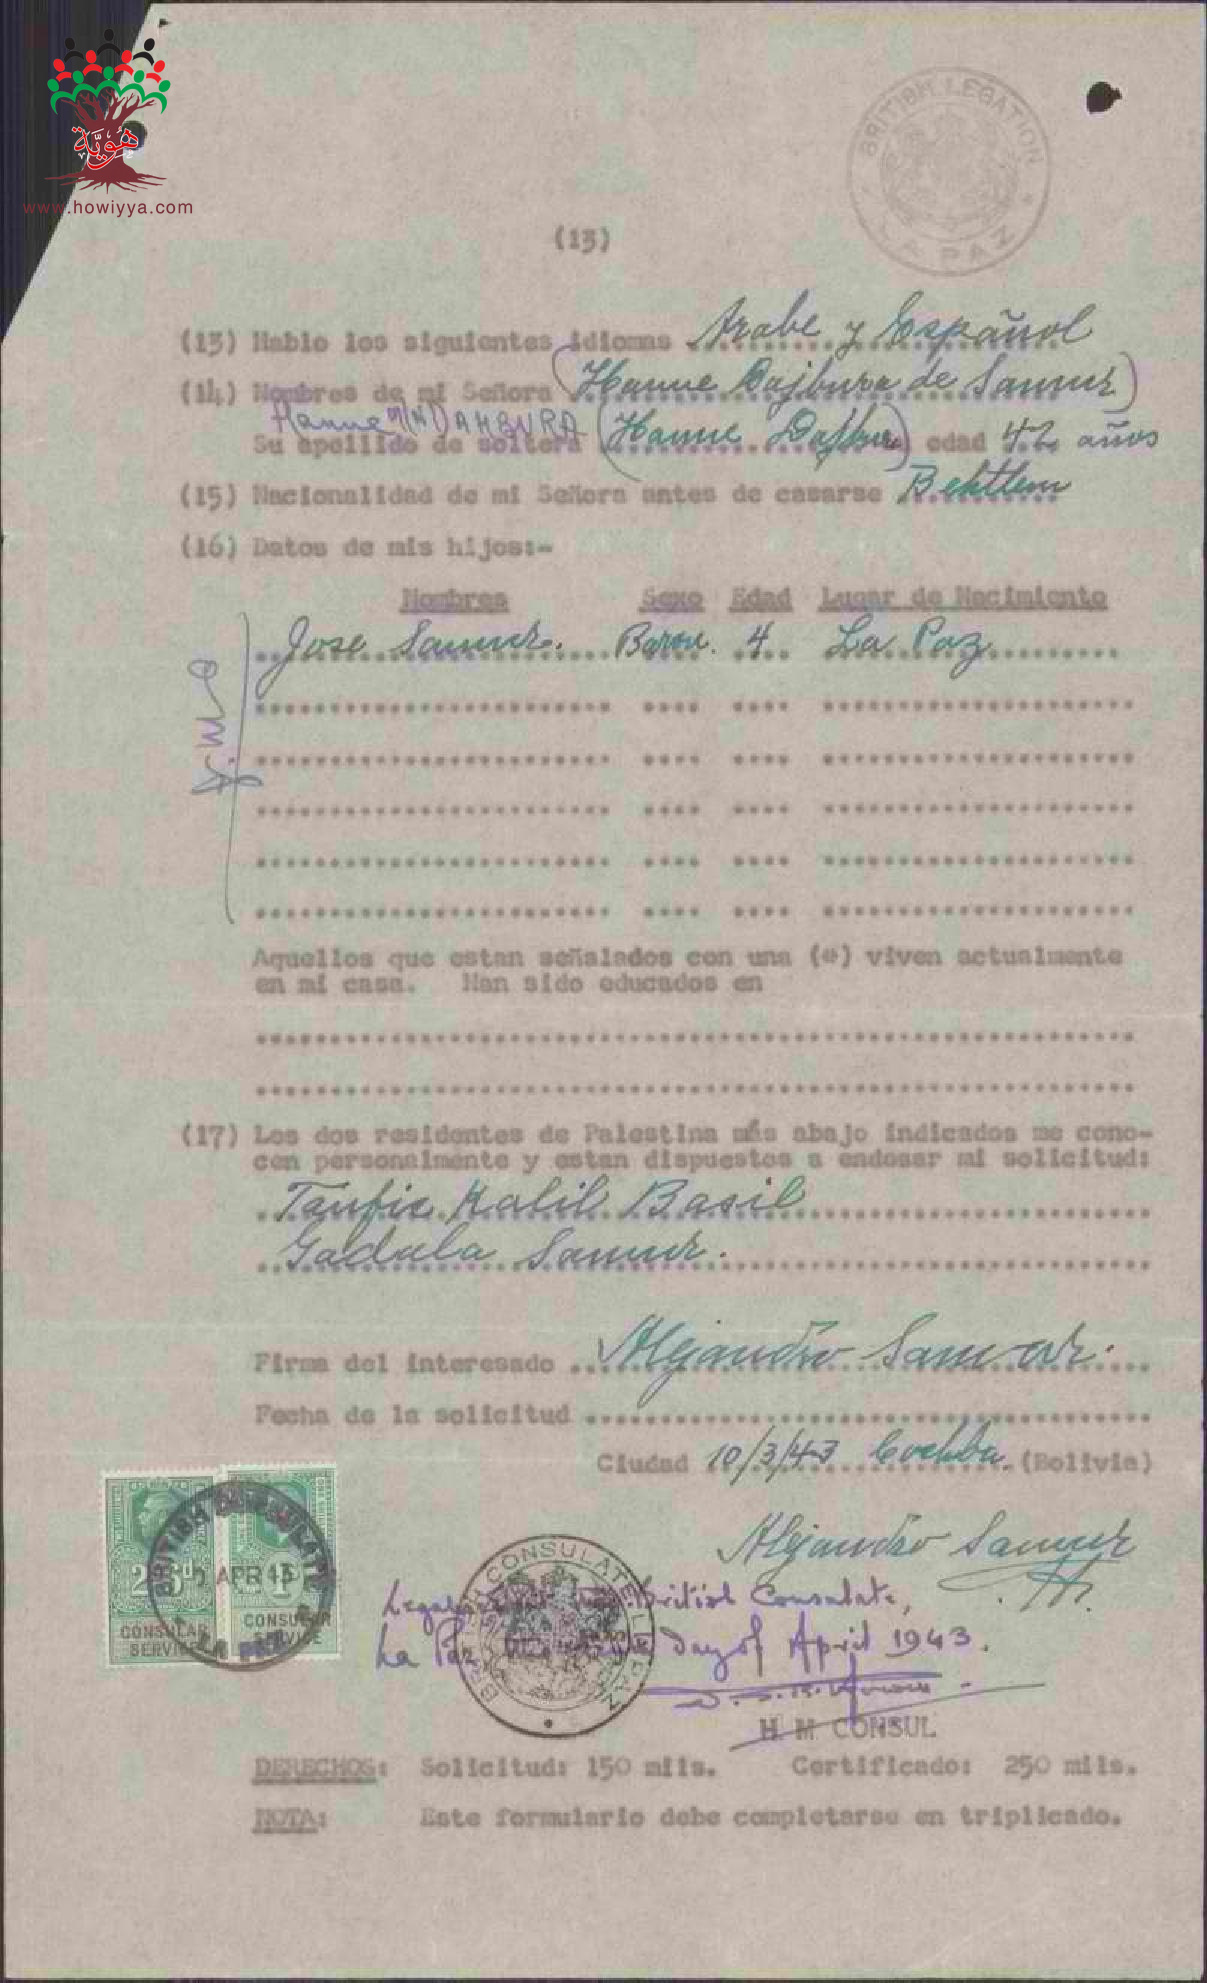 هُوِيَّة
www.howiyya.com
BRITISH LEGATION
LA PAZ
(13)
(13) Hablo los siguientes idiomas Arabe y Español
(14) Nombres de mi Señora (Hanne Dajbura de Samur)
Hanne DAHBURA
Su apellido de soltera (Hanne) edad 42 años
(15) Nacionalidad de mi Señora antes de casarse Behtlem
(16) Datos de mis hijos:-
Nombres Sexo Edad Lugar de Nacimiento
Jose Samur. Baron. 4 La Paz
Aquellos que estan señalados con una (*) viven actualmente
en mi casa. Han sido educados en
(17) Los dos residentes de Palestina más abajo indicados me cono-
cen personalmente y estan dispuestos a endosar mi solicitud:
Taufic Kalil Basil
Gadala Samur.
Firma del interesado Alejandro Samur.
Fecha de la solicitud
Ciudad 10/3/43 Cochba. (Bolivia)
Alejandro Samur
BRITISH CONSULATE
APR 43
LA PAZ
CONSULAR SERVICE
CONSULAR SERVICE
BRITISH CONSULATE LA PAZ
British Consulate,
La Paz day of April 1943.
H M CONSUL
DERECHOS: Solicitud: 150 mils. Certificado: 250 mils.
NOTA: Este formulario debe completarse en triplicado.